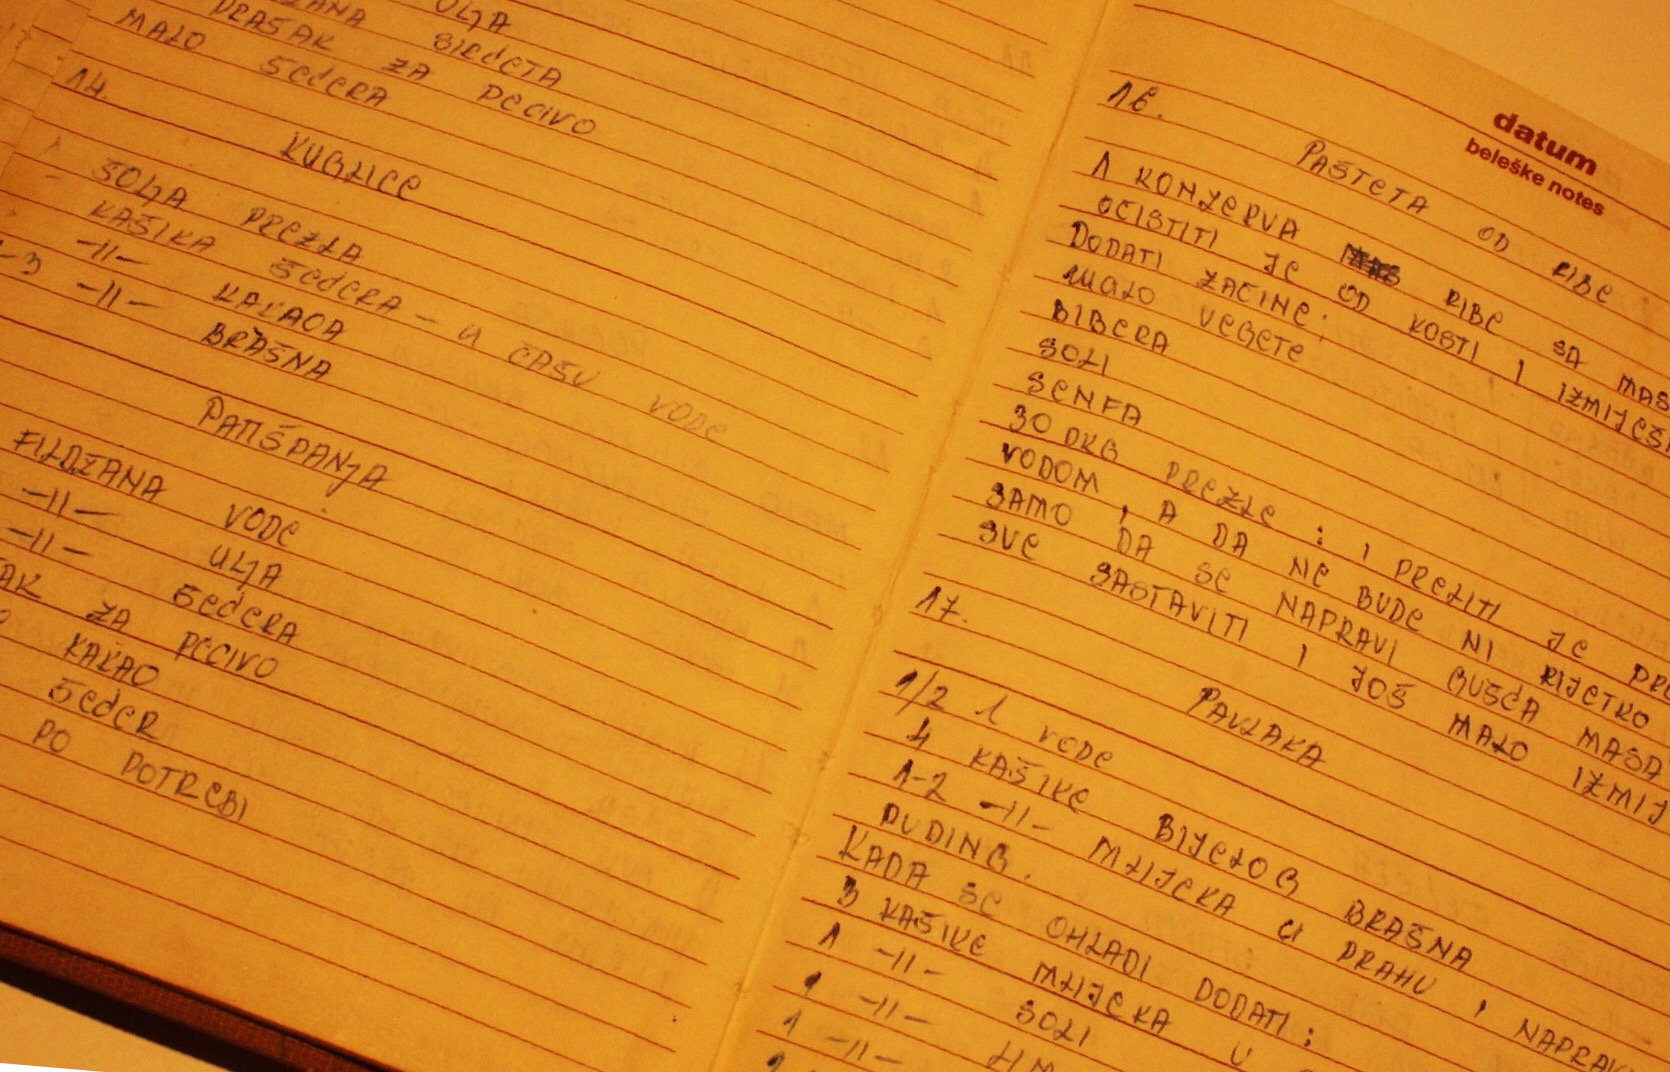 ULJA
SIRĆETA
PRAŠAK ZA PECIVO
MALO ŠEĆERA
14.
KUGLICE
1 ŠOLJA PREZLA
- KAŠIKA ŠEĆERA - U ČAŠU VODE
-3 -11- KAKAOA
-11- BRAŠNA
PATIŠPANJA
FILDŽANA VODE
-11- ULJA
-11- ŠEĆERA
AK ZA PECIVO
KAKAO
ŠEĆER
PO POTREBI
datum
beleške notes
16.
PAŠTETA OD RIBE
1 KONZERVA RIBE SA MAS
OČISTITI JE OD KOSTI I IZMIJEŠ
DODATI ZAČINE:
MALO VEGETE
BIBERA
SOLI
SENFA
30 DKG PREZLE; I PRELITI JE
VODOM, A DA NE BUDE NI RIJETKO
SAMO DA SE NAPRAVI GUŠĆA MASA
SVE SASTAVITI I JOŠ MALO IZMIJ
17.
PAVLAKA
1/2 l VODE
4 KAŠIKE BIJELOG BRAŠNA
1-2 -11- MLIJEKA U PRAHU, NAPRAV
PUDING.
KADA SE OHLADI DODATI:
3 KAŠIKE MLIJEKA U
1 -11- SOLI
1 -11- LIM
1 -11-